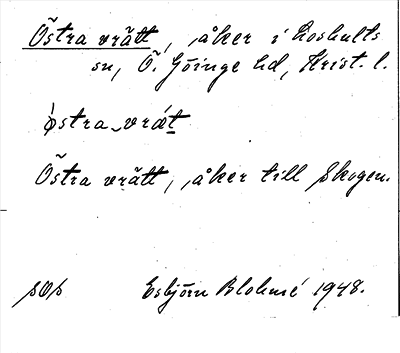 Östra vrätt, åker i Loshults
sn, Ö. Göinge hd, Krist. l.
östra vrät
Östra vrätt, åker till Skogen.
Esbjörn Blohmé 1948.